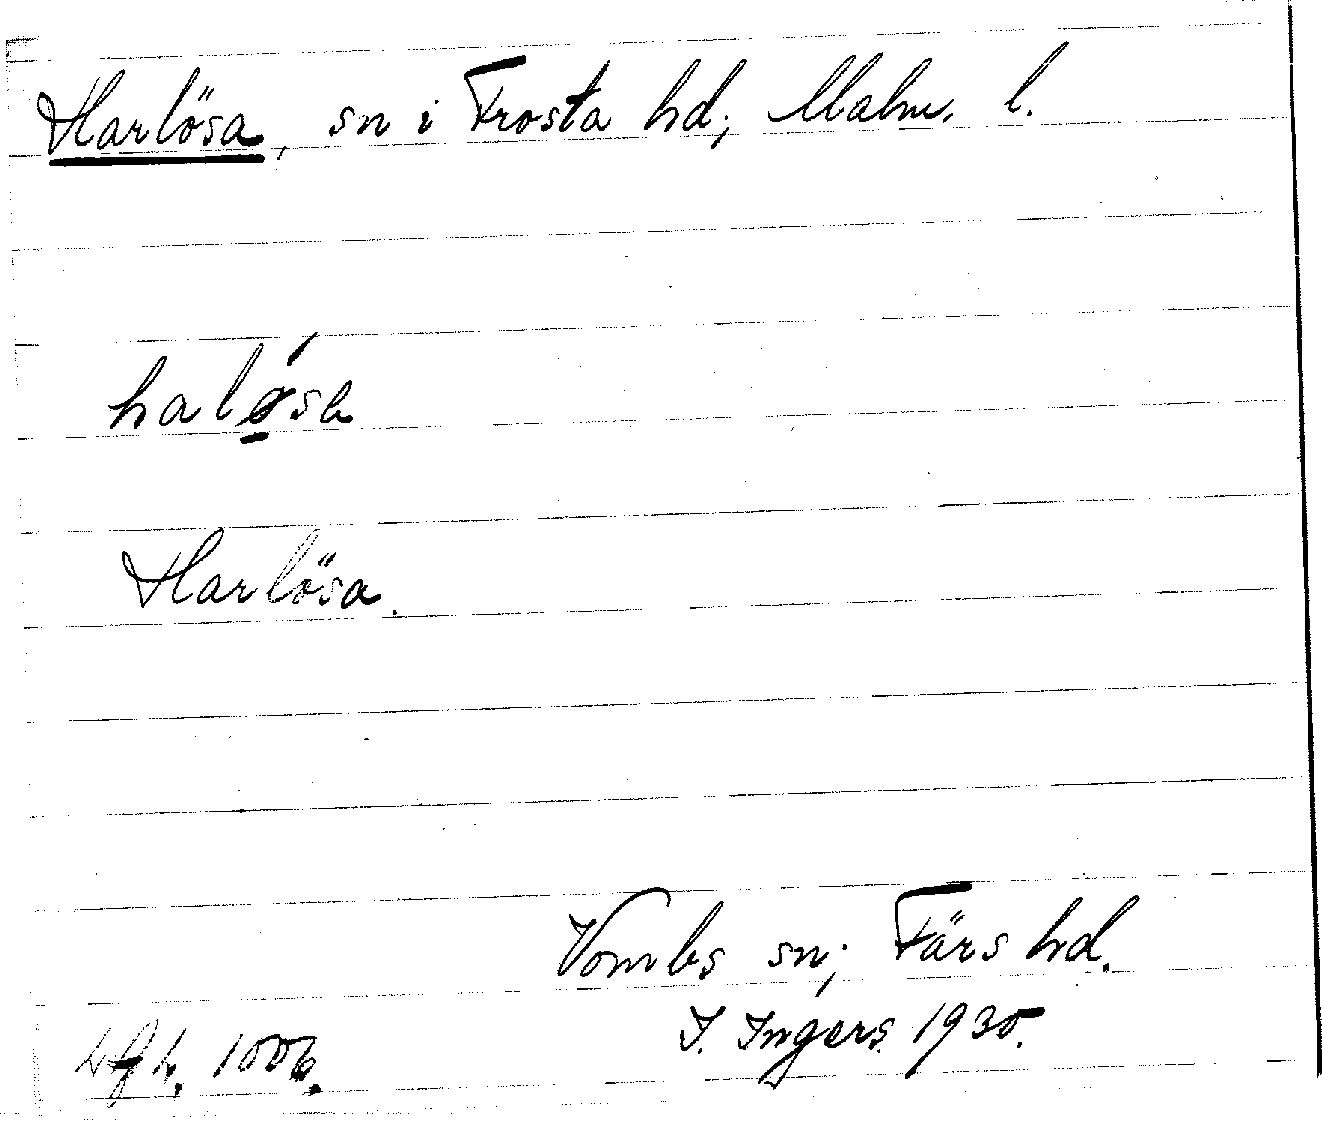 Harlösa, sn i Frosta hd; Malm. l.
halǿ̱sa
Harlösa.
Vombs sn; Färs hd.
I. Ingers. 1930.
1006.